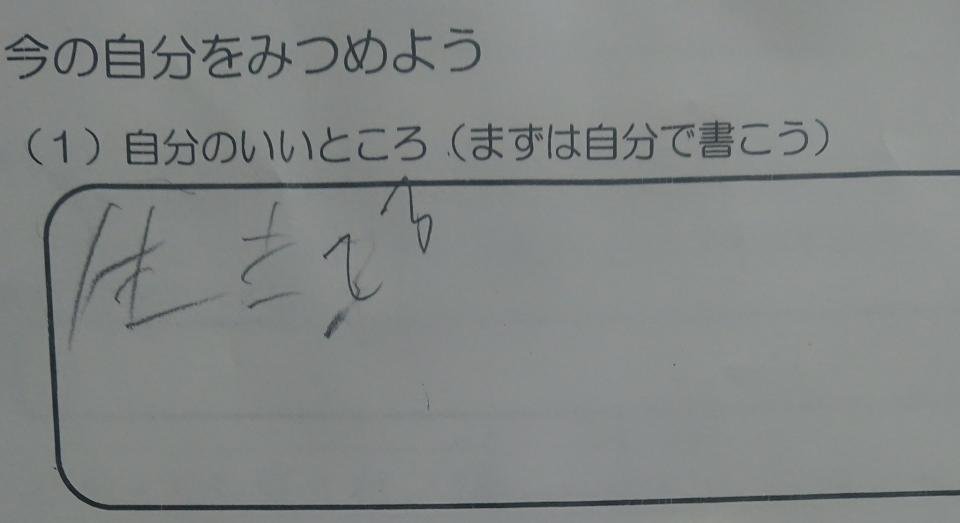 今の自分をみつめよう
(1)自分のいいところ(まずは自分で書こう)